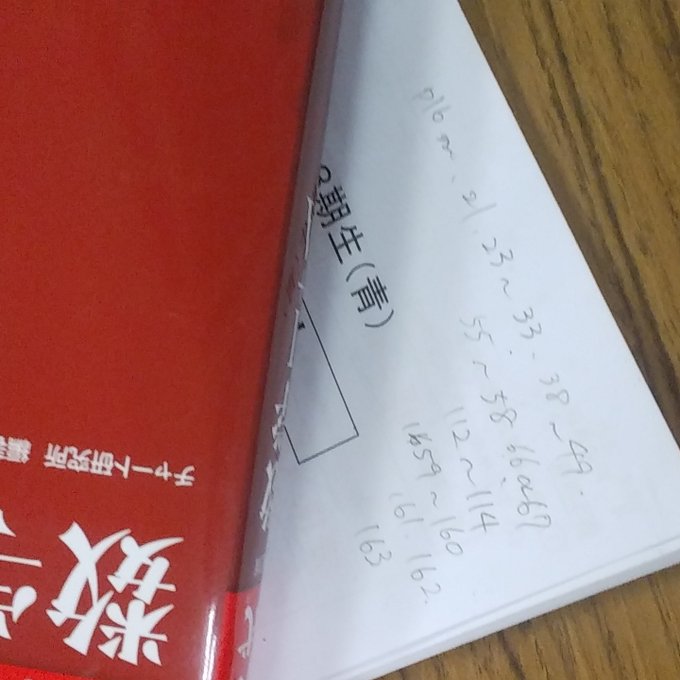 期生(青)
21.23~33.38~49.
55~58 66~67
112~114
159~160
161.162.
163
チャート研究所 編著
数